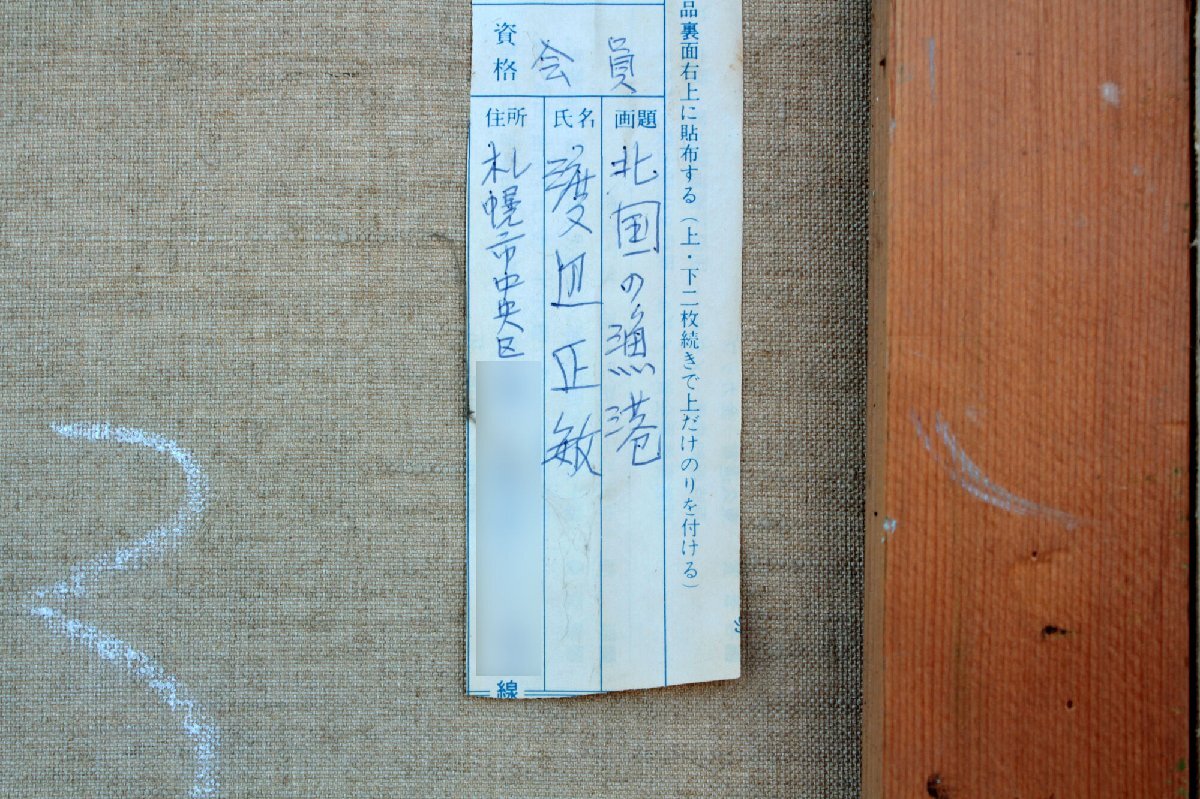 品裏面右上に貼布する（上・下二枚続きで上だけのりを付ける）
資格
会員
画題
北国の漁港
氏名
渡辺正敏
住所
札幌市中央区
線